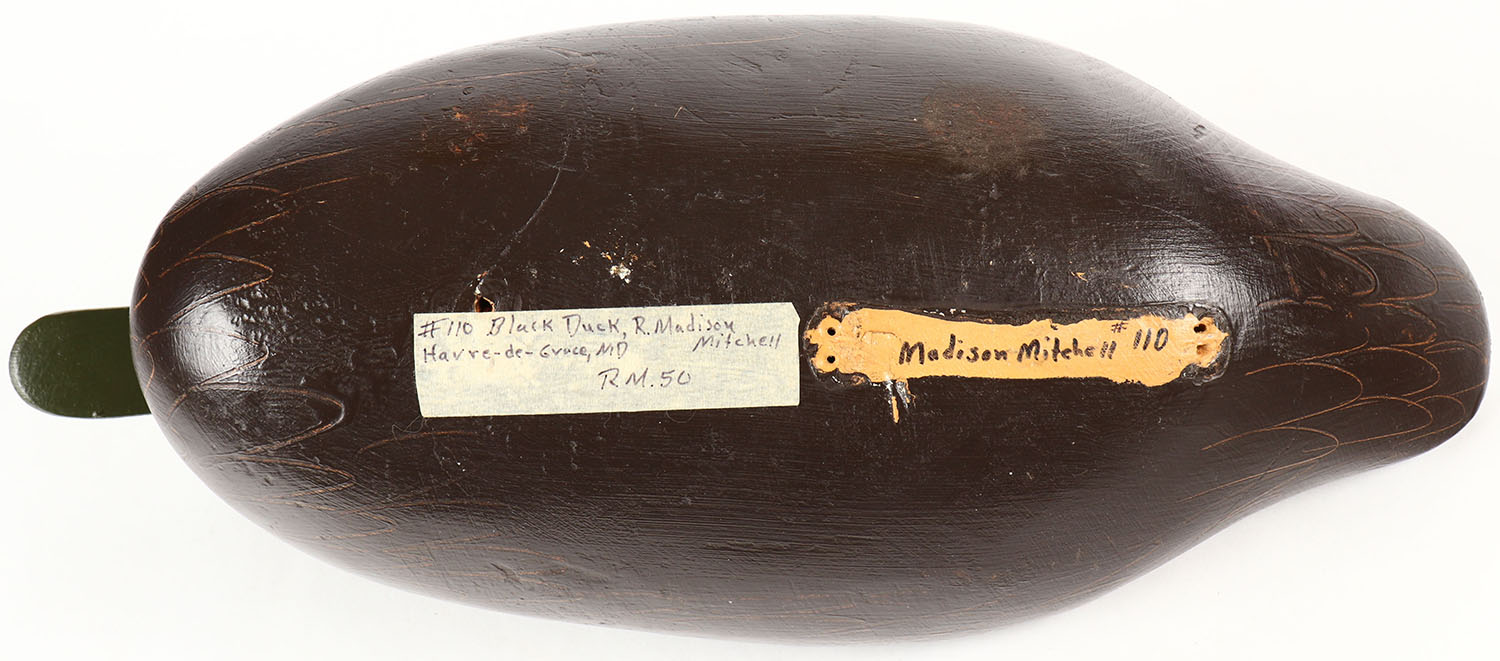 #110 Black Duck, R. Madison
Mitchell
Havre-de-Grace, MD
RM.50
Madison Mitchell #110